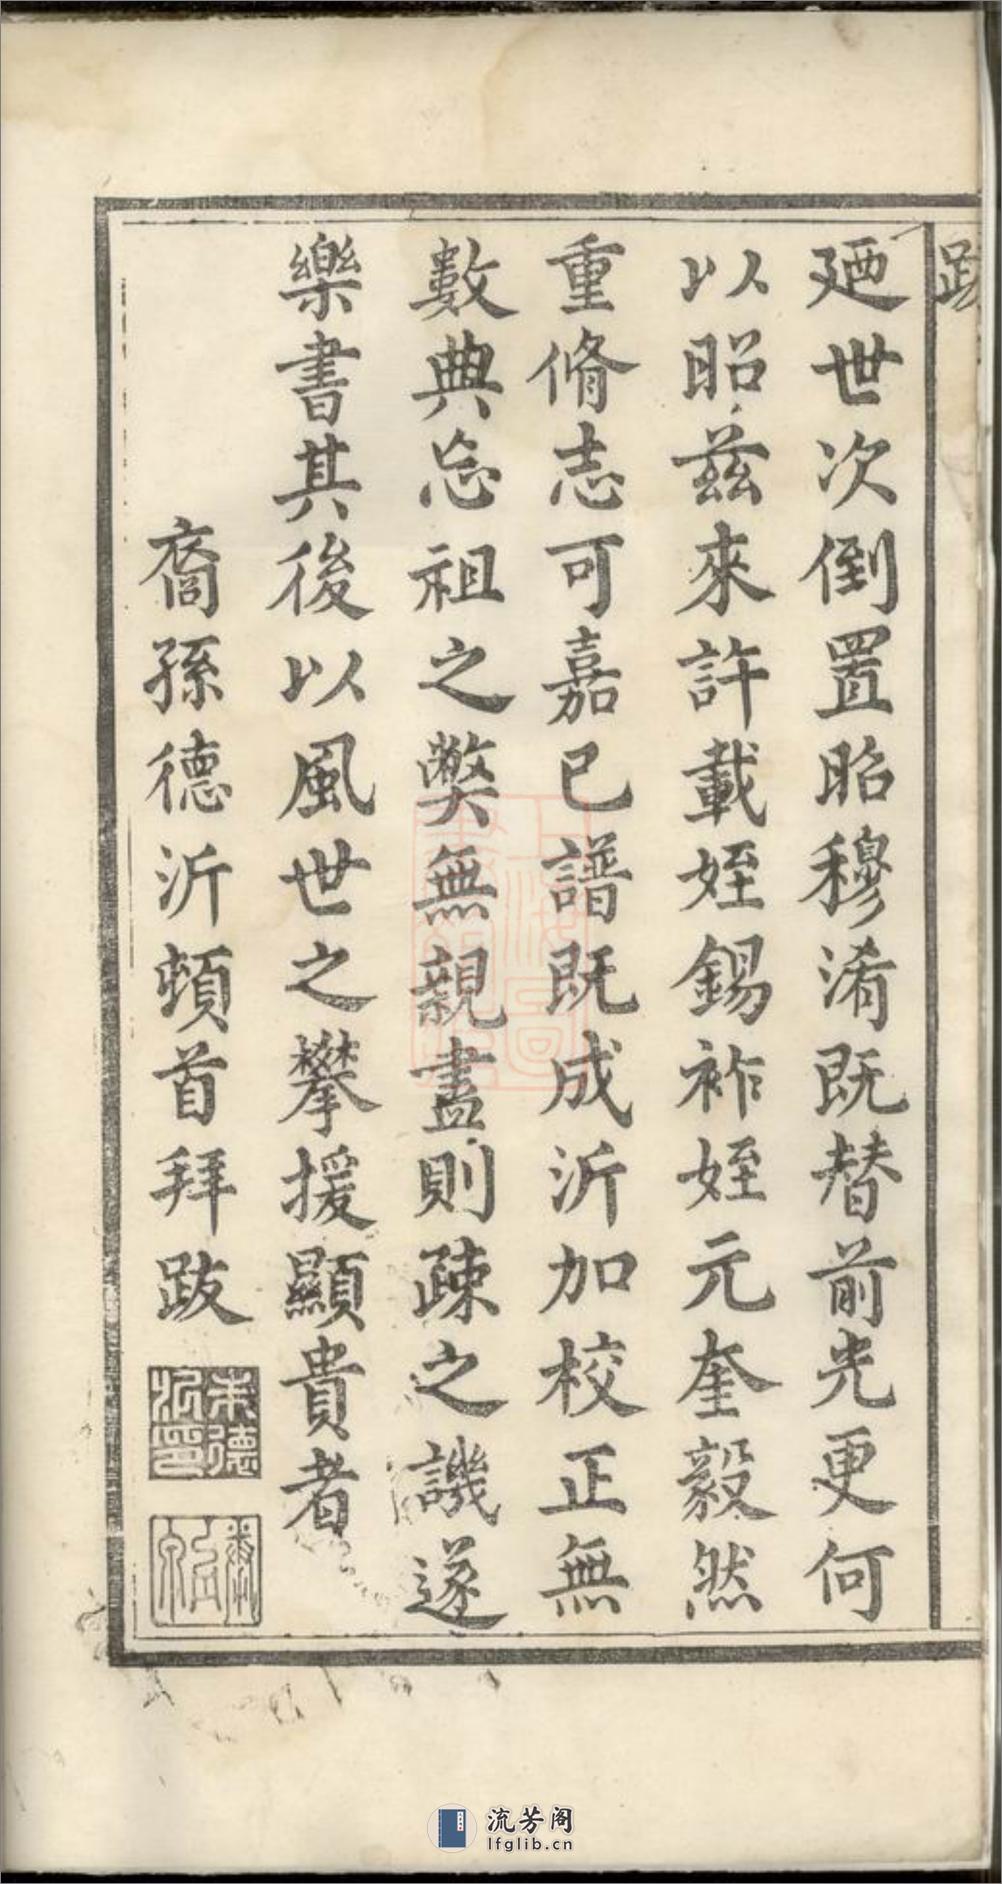 跋
廼世次倒置昭穆淆既替前光更何
以昭茲來許載姪錫祚姪元奎毅然
重脩志可嘉已譜既成沂加校正無
數典忘祖之弊無親盡則疎之譏遂
樂書其後以風世之攀援顯貴者
裔孫德沂頓首拜跋
朱德沂印
上海圖書館藏
流芳阁
lfglib.cn